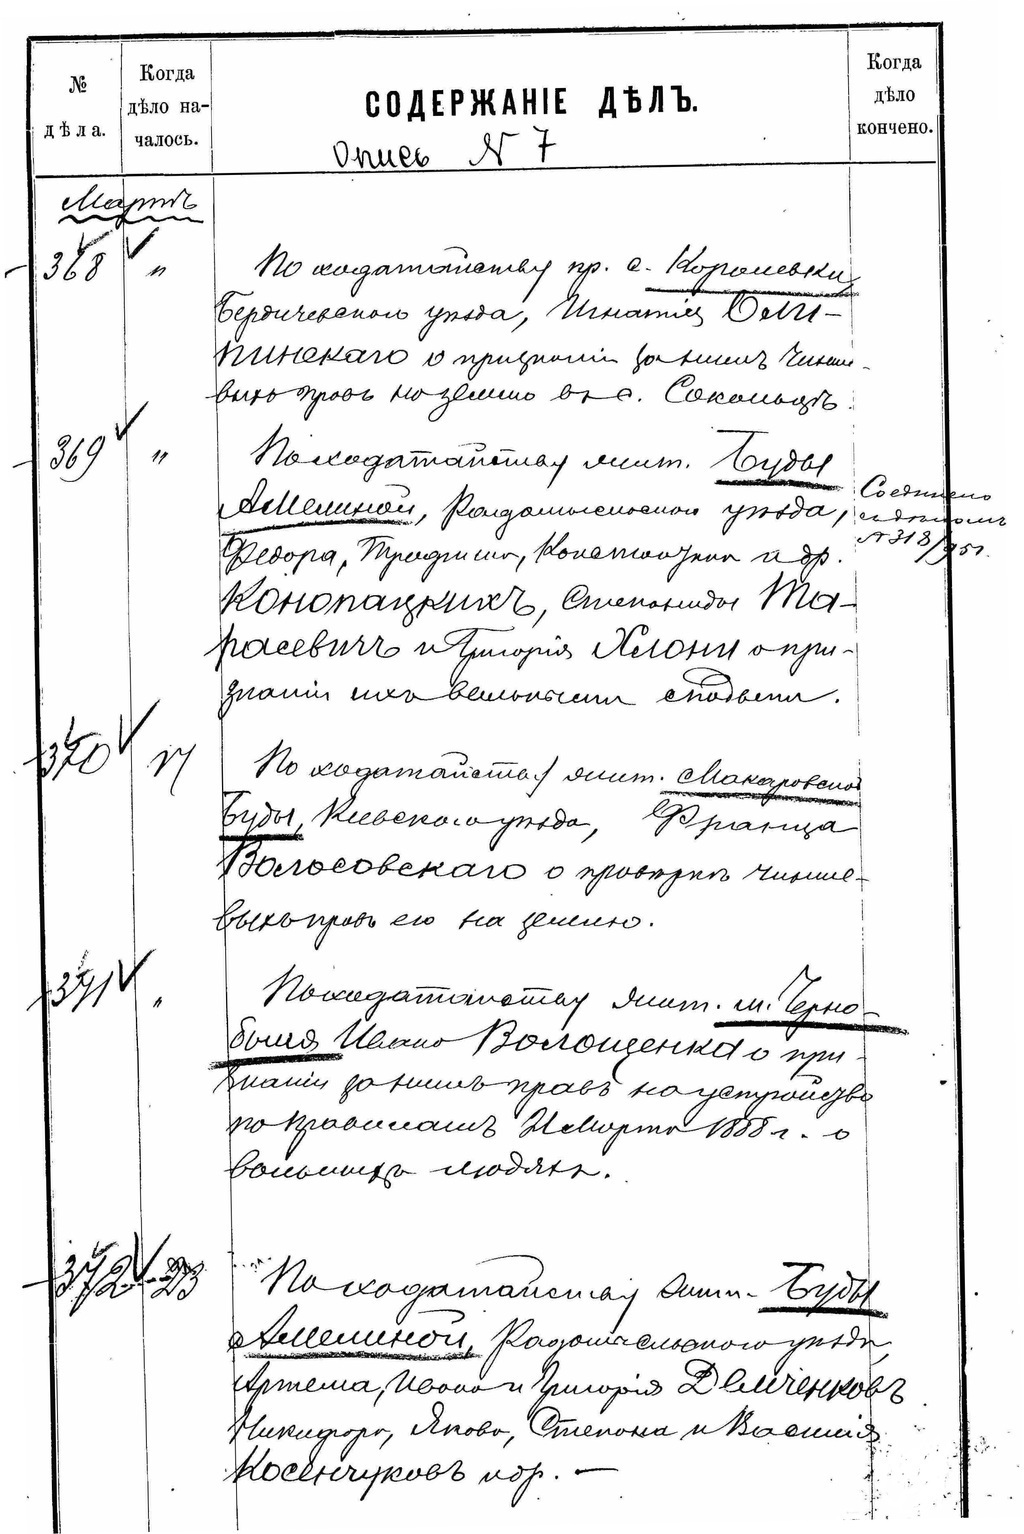 № дѣла.
Когда дѣло на-чалось.
СОДЕРЖАНІЕ ДѢЛЪ.
Когда дѣло кончено.
Опись N 7
Мартъ
368 " По ходатайству кр. с. Королевки,
Бердичевскаго уѣзда, Игнатія
пинскаго о признаніи за нимъ чинше-
выхъ правъ на землю въ с.
369 " По ходатайству жит. Буды
Амелиной, Радомысльскаго уѣзда,
Федора, Трофима, Константина и др.
Конопацкихъ, Степаниды Та-
расевичъ и Григорія Хлони о при-
знаніи ихъ вольными людьми.
Соединено
съ дѣломъ
N 318/951.
370 17 По ходатайству жит. Макаровской
Буды, Кіевскаго уѣзда, Франца
Волосовскаго о провѣркѣ чинше-
выхъ правъ его на землю.
371 " По ходатайству жит. м. Черно-
быля Ивана Волощенка о при-
знаніи за нимъ правъ на устройство
по правиламъ Марта 1888 г. о
вольныхъ людяхъ.
372 23 По ходатайству жит. Буды
Амелиной, Радомысльскаго уѣзда,
Артема, Ивана и Григорія Демченковъ
Никифора, Якова, Степана и Василія
Косенчуковъ и др. —